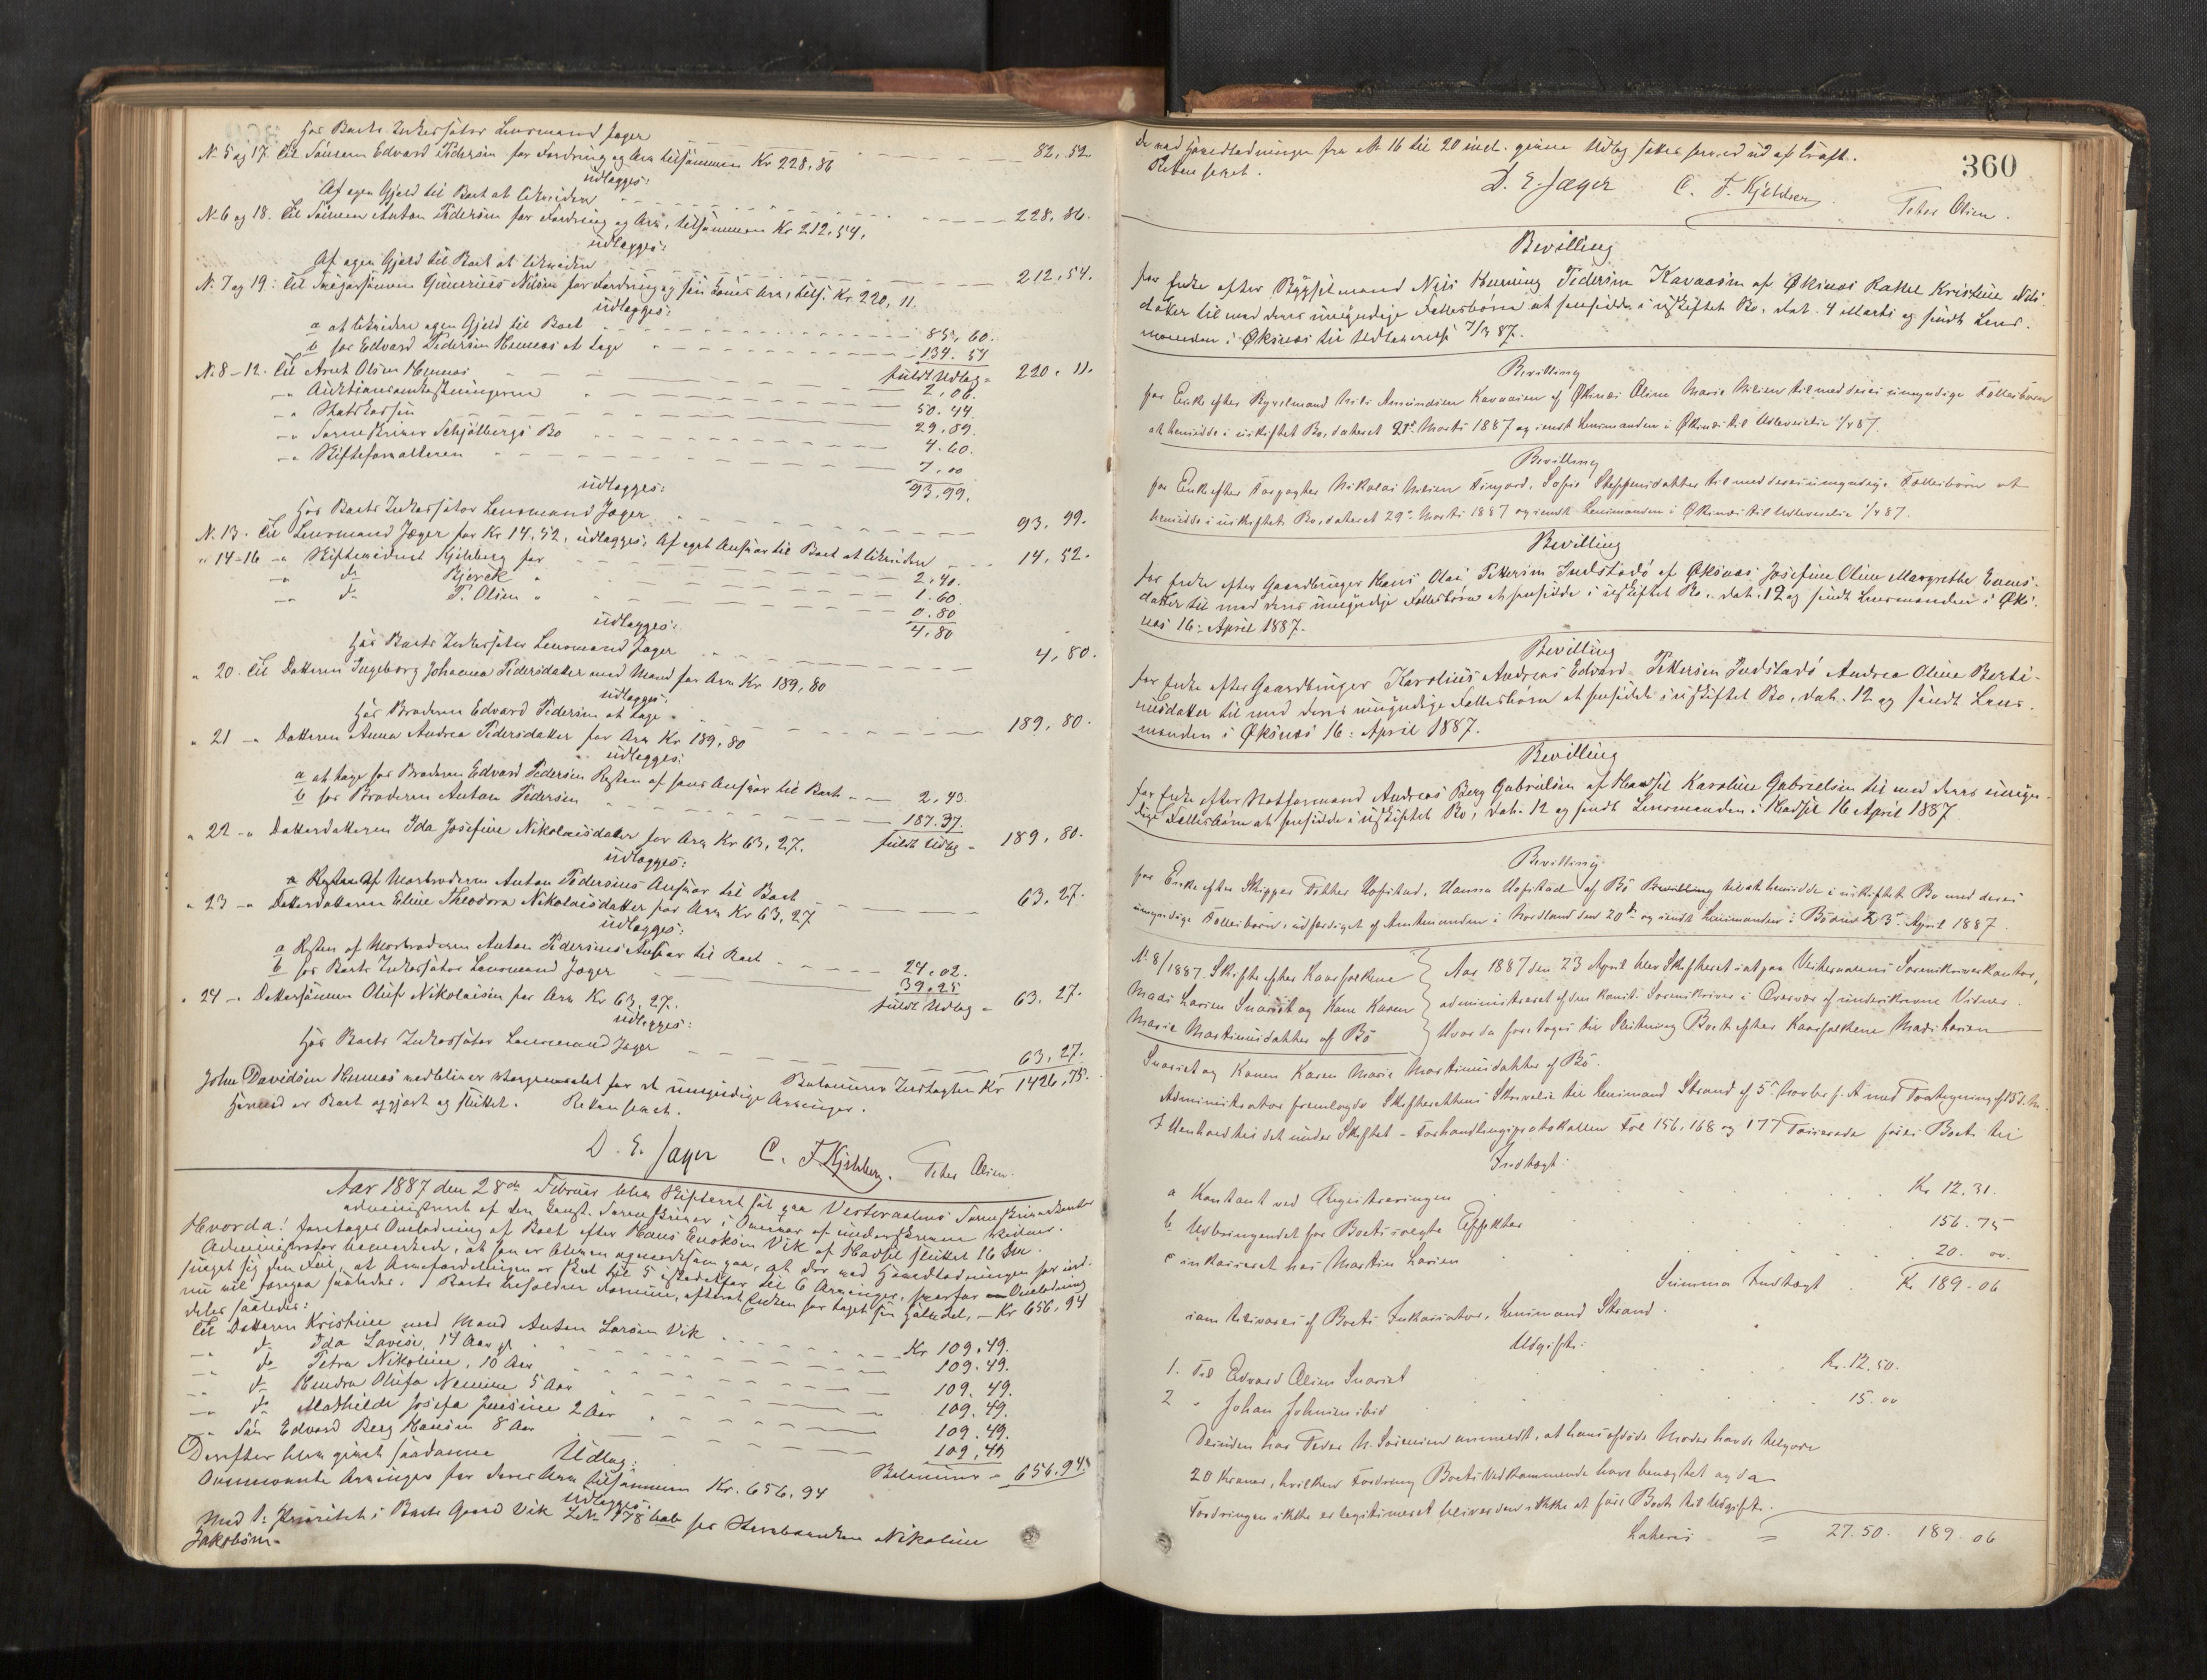 hos Boets Inkassator Lensmand Jæger 82,52
No 5 og 17. Til Sønnen Edvard Pedersen for Fordring og Arv tilsammen Kr 228,86
udlægges:
Af egen Gjæld til Boet at likvidere 228,86.
No 6 og 18. Til Sønnen Anton Pedersen for Fordring og Arv, tilsammen Kr 212,54,
udlægges:
Af egen Gjæld til Boet at likvidere 212,54.
No 7 og 19: Til Svigersønnen Nilsen for Fordring og sin Kones Arv, tils. Kr. 220,11.
udlægges:
a at likvidere egen Gjæld til Boet 85,60.
b hos Edvard Pedersen at tage 134.51
fuldt Udlæg = 220,11.
No 8-12. Til Arnt Olsen 2,06.
-" Auktionsomkostningerne 50.44.
-" Statskassen 29,89.
-" Sorenskriver Schjølbergs Bo 4.60.
-" Skifteforvalteren 7,00
93,99.
udlægges:
hos Boets Inkassator Lensmand Jæger 93,99.
No 13. Til Lensmand Jæger for Kr 14,52, udlægges: Af eget Ansvar til Boet at likvidere 14,52.
" 14-16 -" Skiftevidnet Kjelsberg for 2,40.
-" do Bjerck " 1.60.
-" do P. Olsen " 0.80
4,80
udlægges:
hos Boets Inkassator Lensmand Jæger 4,80.
" 20. Til Datteren Ingeborg Johanna Pedersdatter med Mand for Arv Kr 189,80
udlægges:
hos Broderen Edvard Pedersen at tage 189,80.
" 21 -" Datteren Anna Andrea Pedersdatter for Arv Kr 189,80
udlægges:
a at tage hos Broderen Edvard Pedersen Resten af hans Ansvar til Boet 2,43.
b hos Broderen Anton Pedersen 187.37.
fuldt Udlæg = 189,80.
" 22 -" Datterdatteren Ida Josefine Nikolaisdatter for Arv Kr 63,27.
udlægges:
Af Morbroderen Anton Pedersens Ansvar til Boet 63,27.
" 23 -" Datterdatteren Eline Theodora Nikolaisdatter for Arv Kr 63,27
udlægges:
a Resten af Morbroderen Anton Pedersens Ansvar til Boet 24,02.
b hos Boets Inkassator Lensmand Jæger 39,25
fuldt Udlæg = 63,27.
" 24 -" Dattersønnen Oluf Nikolaisen for Arv Kr 63,27.
udlægges:
hos Boets Inkassator Lensmand Jæger 63,27.
Balancerer Indtægten Kr 1426,75.
John Davidsen vedbliver Værgemaalet for de umyndige Arvinger.
Hermed er Boet opgjort og sluttet. Retten hævet.
D. E. Jæger C. F. Kjelsberg. Peter Olsen.
Aar 1887 den 28de Februar blev Skifteret sat paa Vesteraalens Sorenskriverkontor
administreret af den konst. Sorenskriver i Overvær af underskrevne Vidner.
Hvorda: foretoges Omlodning af Boet efter Hans Enoksen Vik af Hadsel sluttet 16 Dm.
Administrator bemærkede, at han er bleven opmærksom paa, at der ved Hovedlodningen har ind-
sneget sig den Feil, at Arvefordelingen er sket til 5 istedetfor til 6 Arvinger, hvorfor Omlodning
nu vil foregaa saaledes: Boets beholdne Formue, efterat Enken har taget sin Halvdel, - Kr 656,94
deles saaledes:
Til Datteren Kristine med Mand Anton Larsen Vik Kr 109,49.
-" do Ida Lovise, 14 Aar gl. 109.49.
-" do Petra Nikoline, 10 Aar 109.49.
-" do Hendra Olufa 5 Aar 109.49.
-" do Mathilde Josefa Jensine 2 Aar 109.49.
-" Søn Edvard Berg Hansen 8 Aar 109,49
Balancerer = 656,94.
Derefter blev gjort saadanne Udlæg:
Ovennævnte Arvinger for deres Arv tilsammen Kr. 656,94
udlægges:
Med 1. Prioritet i Boets Gaard Vik L.No 178 hos Stervboenken Nikoline
Jakobsen.
360
De ved Hovedlodningen fra No 16 til 20 incl. givne Udlæg sættes herved ud af Kraft.
Retten hævet.
D. E. Jæger C. F. Kjelsberg. Peter Olsen.
Bevilling
for Enke efter Bygselmand Nils Henning Pedersen Kavaasen af Øksnes Rakel Kristine Nils-
datter til med deres umyndige Fællesbørn at hensidde i uskiftet Bo, dat. 4 Marts og sendt Lens-
manden i Øksnes til Udleverelse 7/3 87.
Bevilling
for Enke efter Bygselmand Nils Amundsen Kavaasen af Øksnes Oline Marie Nilsen til med deres umyndige Fællesbørn
at hensidde i uskiftet Bo, dateret 29de Marts 1887 og sendt Lensmanden i Øksnes til Udleverelse 1/4 87.
Bevilling
for Enke efter Nikolai Nilsen Tinjord, Sofie Steffensdatter til med deres umyndige Fællesbørn at
hensidde i uskiftet Bo, dateret 29de Marts 1887 og sendt Lensmanden i Øksnes til Udleverelse 1/4 87.
Bevilling
for Enke efter Gaardbruger Hans Olai Pettersen Indstadø af Øksnes Josefine Oline Margrethe Enens-
datter til med deres umyndige Fællesbørn at hensidde i uskiftet Bo, dat. 12 og sendt Lensmanden i Øks-
nes 16: April 1887.
Bevilling
for Enke efter Gaardbruger Karolius Andreas Edvard Pettersen Indstadø Andrea Oline Berti-
nusdatter til med deres umyndige Fællesbørn at hensidde i uskiftet Bo, dat. 12 og sendt Lens-
manden i Øksnes 16: April 1887.
Bevilling
for Enke efter Notformand Andreas Berg Gabrielsen af Hadsel Karoline Gabrielsen til med deres umyn-
dige Fællesbørn at hensidde i uskiftet Bo, dat. 12 og sendt Lensmanden i Hadsel 16 April 1887.
Bevilling
for Enke efter Skipper Petter Hofstad, Hanna Hofstad af Bø Bevilling til at hensidde i uskiftet Bo med deres
umyndige Fællesbørn, udfærdiget af Amtmanden i Nordland den 20de og sendt Lensmanden i Bø den 23de April 1887.
No 8/1887. Skifte efter Konefolkene
Mads Larsen Snarset og Kone Karen
Marie Martinusdatter af Bø
Aar 1887 den 23 April blev Skifteret sat paa Vesteraalens Sorenskriverkontor,
administreret af den konst. Sorenskriver i Overvær af underskrevne Vidner.
Hvor da foretoges til Slutning Boet efter Konefolkene Mads Larsen
Snarset og Konen Karen Marie Martinusdatter af Bø.
Administrator fremlagde Skifterettens Skrivelse til Lensmand Strand af 5te Novbr f. A. med Paategning af 15 d. M.
I Henhold til det under Skiftet - Forhandlingsprotokollen Fol 156, 168 og 177 Passerede føres Boet til
Indtægt:
a Kontant ved Registreringen Kr. 12.31.
b. Udbringendet for Boets solgte Effekter 156.75
c inkasseret hos Martin Larsen 20.00.
Summa Indtægt Kr 189-06
som tilsvares af Boets Inkassator, Lensmand Strand.
Udgift:
1. Til Edvard Olsen Snarset Kr. 12.50.
2 " Johan Johnsen ibid 15.00
Desuden har Peder N. Sørensen anmeldt, at hans afdøde Moder havde tilgode
20 Kroner, hvilken Fordring Boets Vedkommende have benægtet og da
Fordringen ikke er legitimeret bliver den ikke at føre Boet til Udgift.
Lateris = 27.50. 189-06